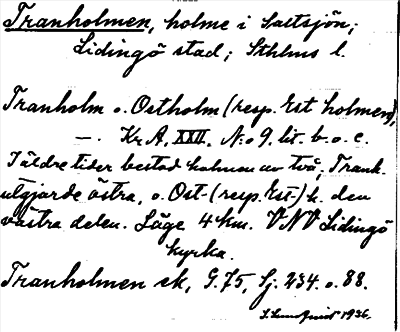 Tranholmen, holme i Saltsjön;
Lidingö stad; Sthlms l.
Tranholm o. Ostholm (resp. Est holmen),
—. Kr. A. XXII. N:o 9. lit. b. o. c.
I äldre tider bestod holmen av två, Tranh.
utgjorde östra, o. Ost- (resp. Est-) h. den
västra delen. Läge 4 km. VNV Lidingö
kyrka.
Tranholmen ek, G. 75, Sj. 234. o. 88.
S. Lundquist 1936.